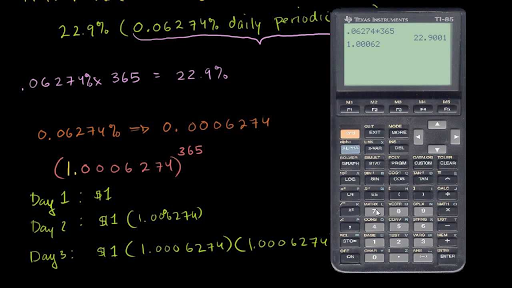 22.9% (0.06274% daily periodic
.06274% x 365 = 22.9%
0.06274% => 0.0006274
(1.0006274)^365
Day 1 : $1
Day 2 : $1 (1.0006274)
Day 3: $1 (1.0006274)(1.0006274
TEXAS INSTRUMENTS TI-85
.06274*365
22.9001
1.00062
M1 M2 M3 M4 M5
EXIT MORE
GRAPH STAT PRGM CUSTOM CLEAR
LOG SIN COS TAN
LN
7 8 9
4 5 6
1 2 3
STO►
ON 0 ENTER